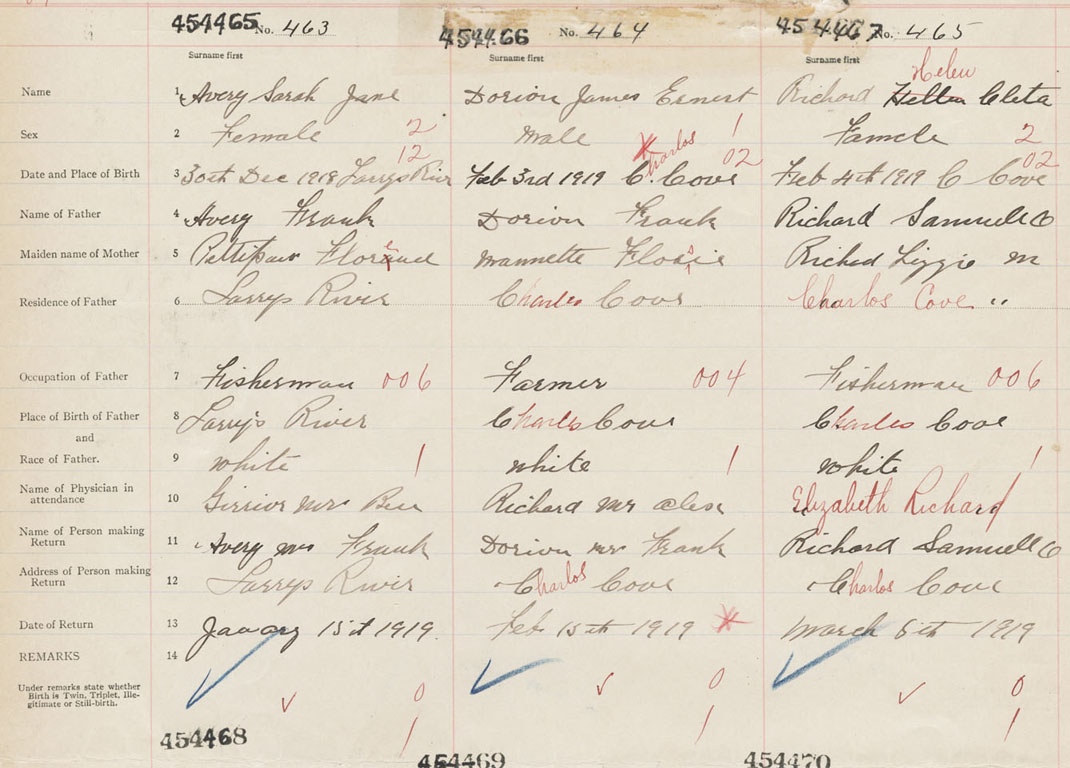 454465 No. 463 454466 No. 464 454467 No. 465
Surname first Surname first Surname first
Helen
Name 1 Avery Sarah Jane Dorion James Ernest Richard Hellen Cleta
Sex 2 Female 2 Male 1 Famele 2
12 Charlos 02 02
Date and Place of Birth 3 30th Dec 1918 Larrys River Feb 3rd 1919 C. Cove Feb 4th 1919 C Cove
Name of Father 4 Avery Frank Dorion Frank Richard Samuell C
Maiden name of Mother 5 Pettipaw Mannette Flosie Richad Lizzie M
Residence of Father 6 Larrys River Charles Cove Charlos Cove "
Occupation of Father 7 Fisherman 006 Farmer 004 Fisherman 006
Place of Birth of Father 8 Larrys River Charles Cove Charles Cove
and
Race of Father. 9 White 1 White 1 White 1
Name of Physician in
attendance 10 Girrior Mrs Richard Mrs Elizabeth Richard
Name of Person making
Return 11 Avery Mrs Frank Dorion Mr Frank Richard Samuell C
Address of Person making
Return 12 Larrys River Charlos Cove Charlos Cove
Date of Return 13 1919 Feb 15th 1919 March 6th 1919
REMARKS 14
Under remarks state whether
Birth is Twin, Triplet, Ille-
gitimate or Still-birth.
0 0 0
1 1 1
454468 454469 454470